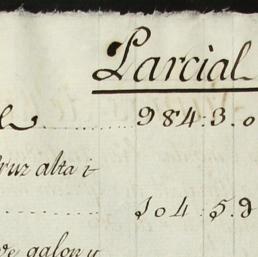 Parcial
984:3.0
cruz alta i
104:5.9
galon y